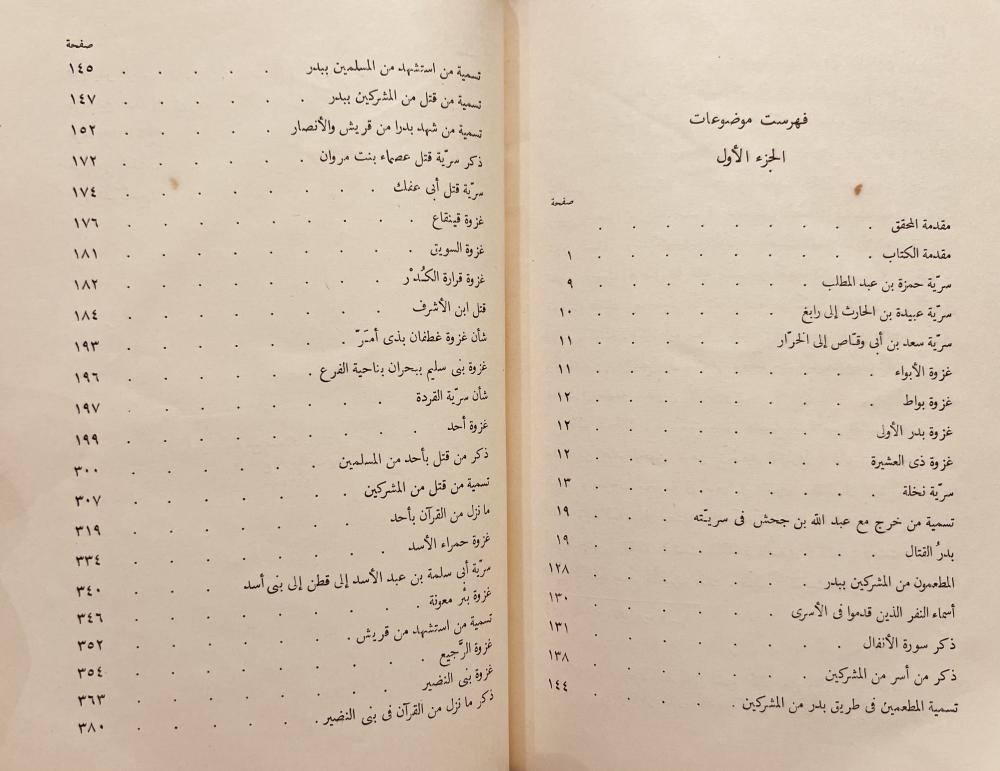 فهرست موضوعات
الجزء الأول
صفحة
مقدمة المحقق . . . . . . . . .
مقدمة الكتاب . . . . . . . . . ١
سريّة حمزة بن عبد المطلب . . . . . . . ٩
سريّة عبيدة بن الحارث إلى رابغ . . . . . . . ١٠
سريّة سعد بن أبى وقّاص إلى الخرّار . . . . . . ١١
غزوة الأبواء . . . . . . . . . ١١
غزوة بواط . . . . . . . . . ١٢
غزوة بدر الأولى . . . . . . . . ١٢
غزوة ذى العشيرة . . . . . . . . ١٢
سريّة نخلة . . . . . . . . ١٣
تسمية من خرج مع عبد الله بن جحش فى سريّته . . . ١٩
بدرُ القتال . . . . . . . . ١٩
المطعمون من المشركين ببدر . . . . . . . ١٢٨
أسماء النفر الذين قدموا فى الأسرى . . . . . . ١٣٠
ذكر سورة الأنفال . . . . . . . . ١٣١
ذكر من أسر من المشركين . . . . . . . ١٣٨
تسمية المطعمين فى طريق بدر من المشركين . . . . . ١٤٤
صفحة
تسمية من استشهد من المسلمين ببدر . . . . . ١٤٥
تسمية من قتل من المشركين ببدر . . . . . . ١٤٧
تسمية من شهد بدرا من قريش والأنصار . . . . . ١٥٢
ذكر سريّة قتل عصماء بنت مروان . . . . . . ١٧٢
سريّة قتل أبى عفك . . . . . . . . ١٧٤
غزوة قينقاع . . . . . . . . ١٧٦
غزوة السويق . . . . . . . . ١٨١
غزوة قرارة الكُدْر . . . . . . . ١٨٢
قتل ابن الأشرف . . . . . . . ١٨٤
شأن غزوة غطفان بذى أمَرّ . . . . . . ١٩٣
غزوة بنى سليم ببحران بناحية الفرع . . . . . . ١٩٦
شأن سريّة القردة . . . . . . . ١٩٧
غزوة أحد . . . . . . . . ١٩٩
ذكر من قتل بأحد من المسلمين . . . . . . ٣٠٠
تسمية من قتل من المشركين . . . . . . . ٣٠٧
ما نزل من القرآن بأحد . . . . . . . ٣١٩
غزوة حمراء الأسد . . . . . . . ٣٣٤
سريّة أبى سلمة بن عبد الأسد إلى قطن إلى بنى أسد . . . ٣٤٠
غزوة بئر معونة . . . . . . . . ٣٤٦
تسمية من استشهد من قريش . . . . . . . ٣٥٢
غزوة الرَّجيع . . . . . . . . ٣٥٤
غزوة بنى النضير . . . . . . . . ٣٦٣
ذكر ما نزل من القرآن فى بنى النضير . . . . . . ٣٨٠